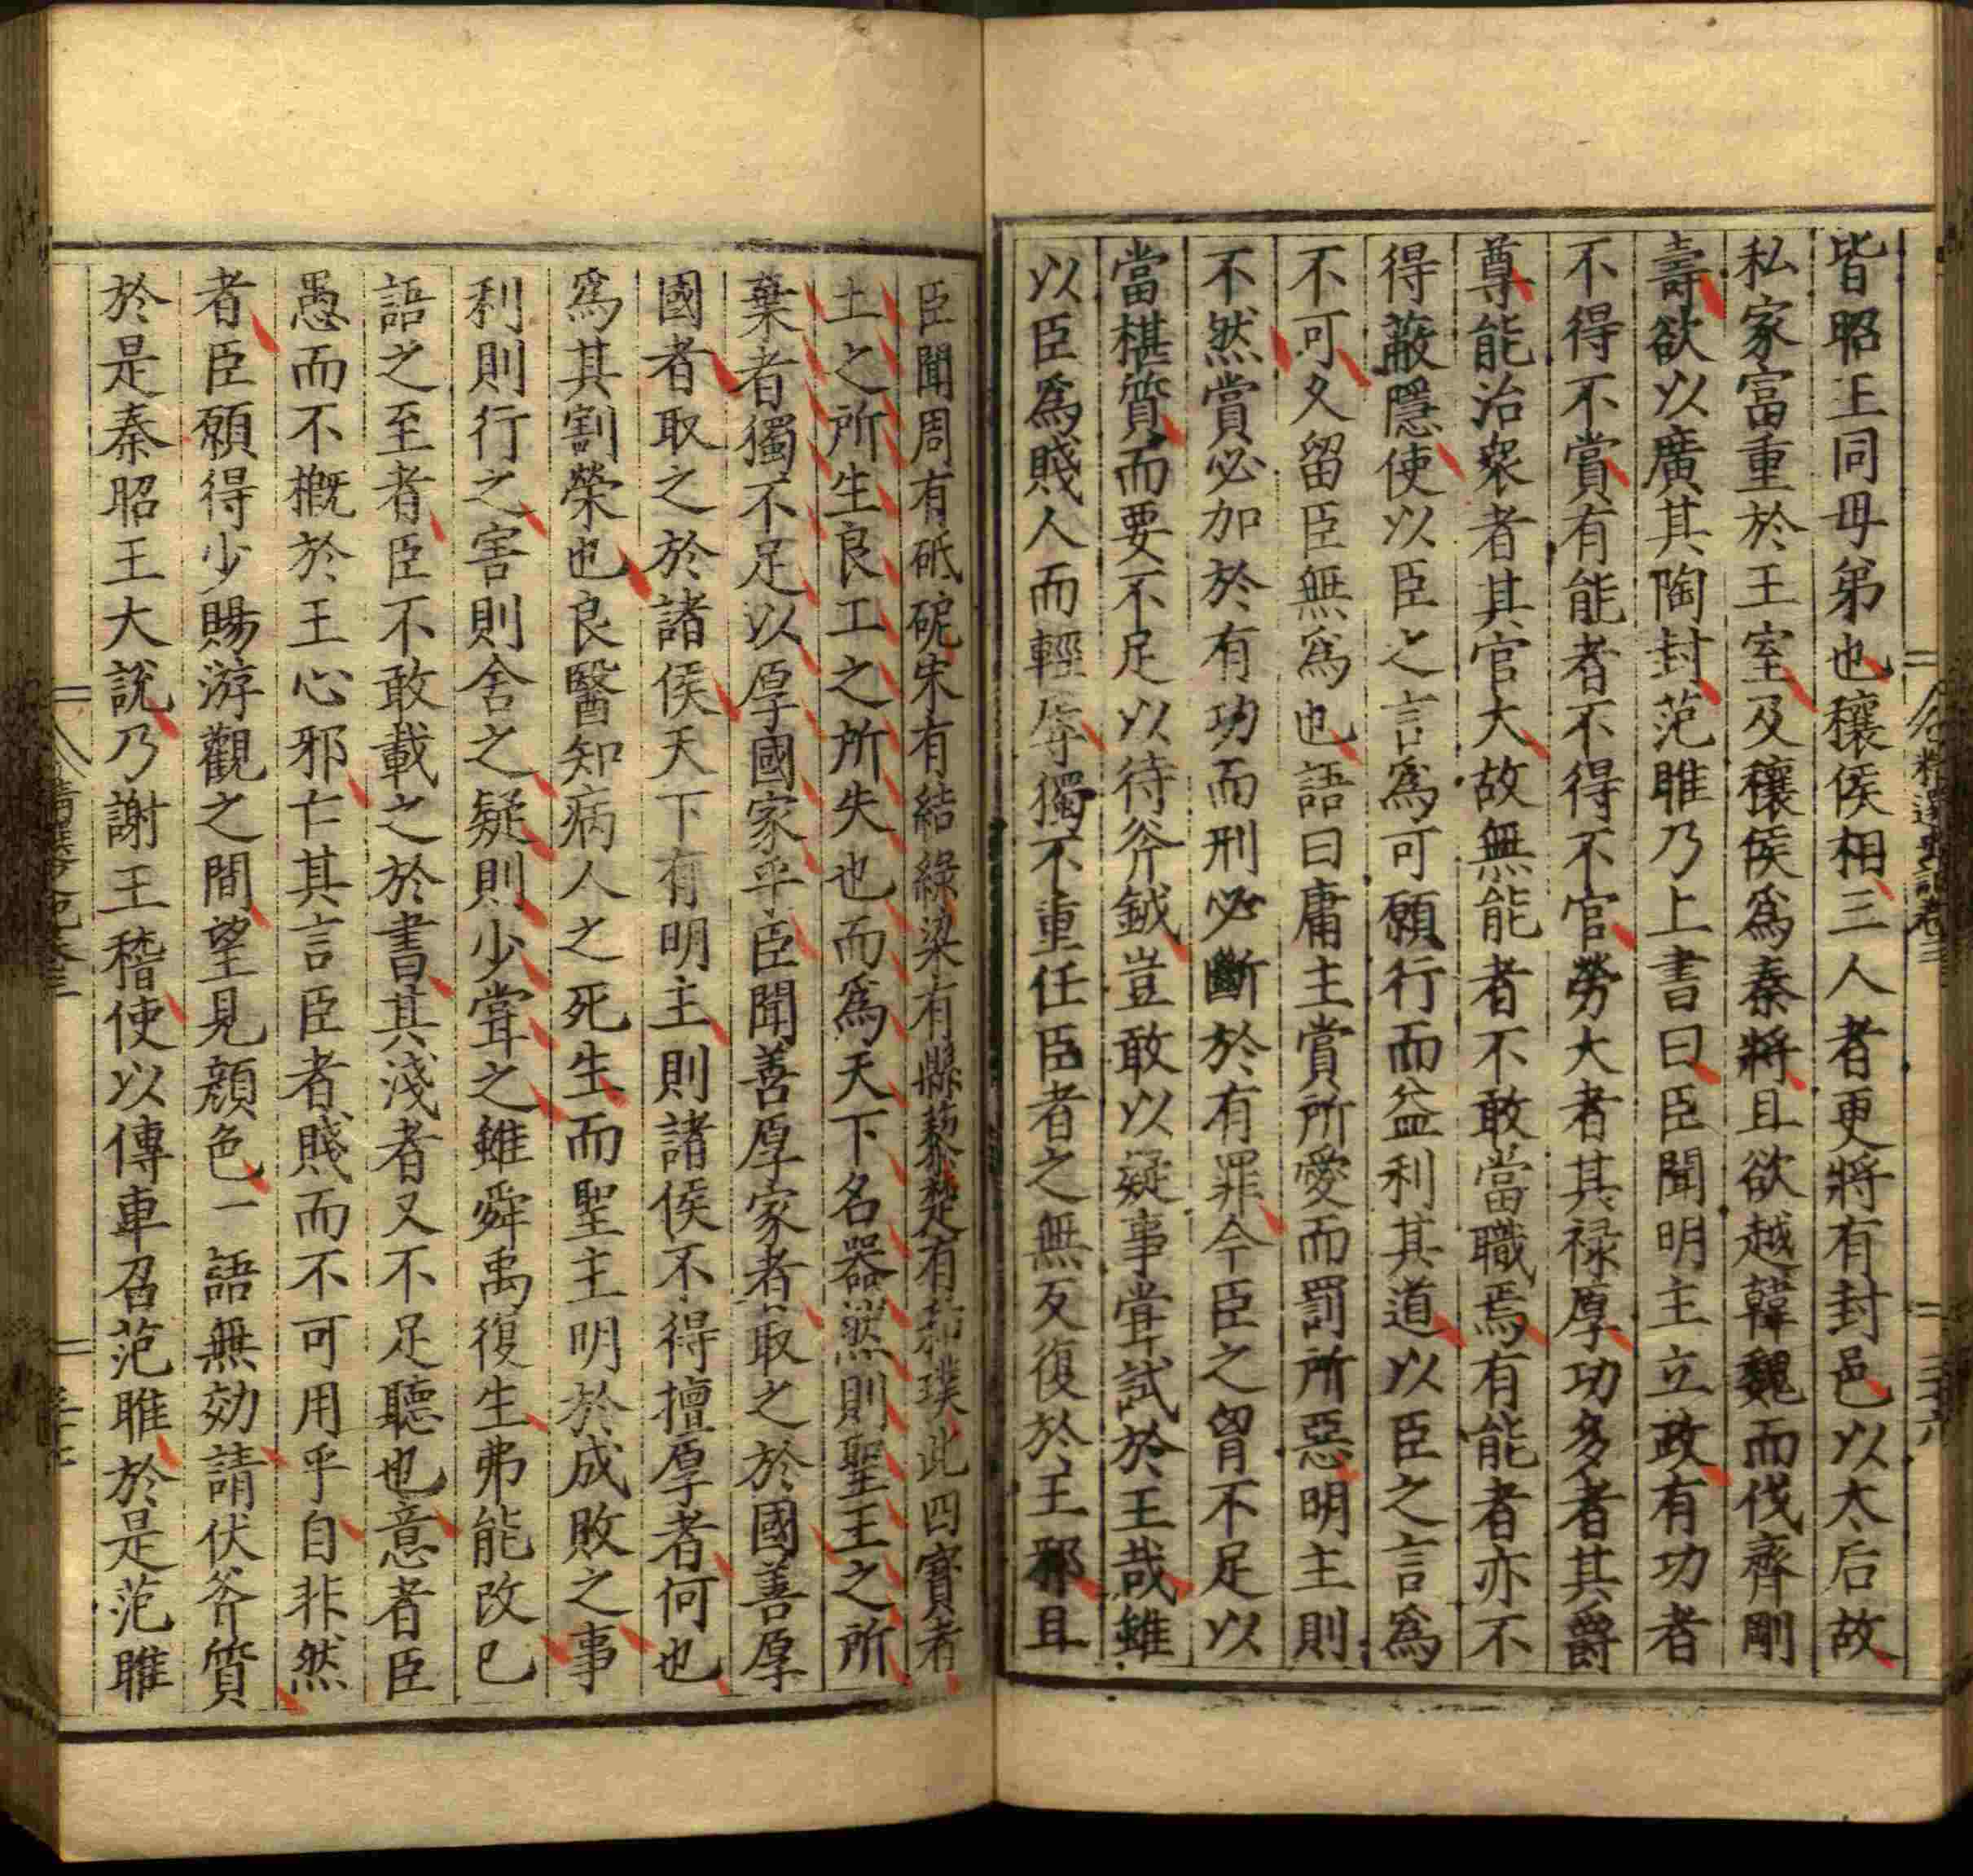 皆昭王同母弟也穰侯相三人者更將有封邑以太后故
私家富重於王室及穰侯爲秦將且欲越韓魏而伐齊剛
壽欲以廣其陶封范雎乃上書曰臣聞明主立政有功者
不得不賞有能者不得不官勞大者其祿厚功多者其爵
尊能治衆者其官大故無能者不敢當職焉有能者亦不
得蔽隱使以臣之言爲可願行而益利其道以臣之言爲
不可久留臣無爲也語曰庸主賞所愛而罰所惡明主則
不然賞必加於有功而刑必斷於有罪今臣之胷不足以
當椹質而要不足以待斧鉞豈敢以疑事嘗試於王哉雖
以臣爲賤人而輕辱獨不重任臣者之無反復於王邪且
精選史記卷三 三十六
臣聞周有砥砨宋有結綠梁有縣藜楚有和璞此四寶者
土之所生良工之所失也而爲天下名器然則聖王之所
棄者獨不足以厚國家乎臣聞善厚家者取之於國善厚
國者取之於諸侯天下有明主則諸侯不得擅厚者何也
爲其割榮也良醫知病人之死生而聖主明於成敗之事
利則行之害則舍之疑則少嘗之雖舜禹復生弗能改已
語之至者臣不敢載之於書其淺者又不足聽也意者臣
愚而不概於王心邪亡其言臣者賤而不可用乎自非然
者臣願得少賜游觀之間望見顔色一語無効請伏斧質
於是秦昭王大說乃謝王稽使以傳車召范雎於是范雎